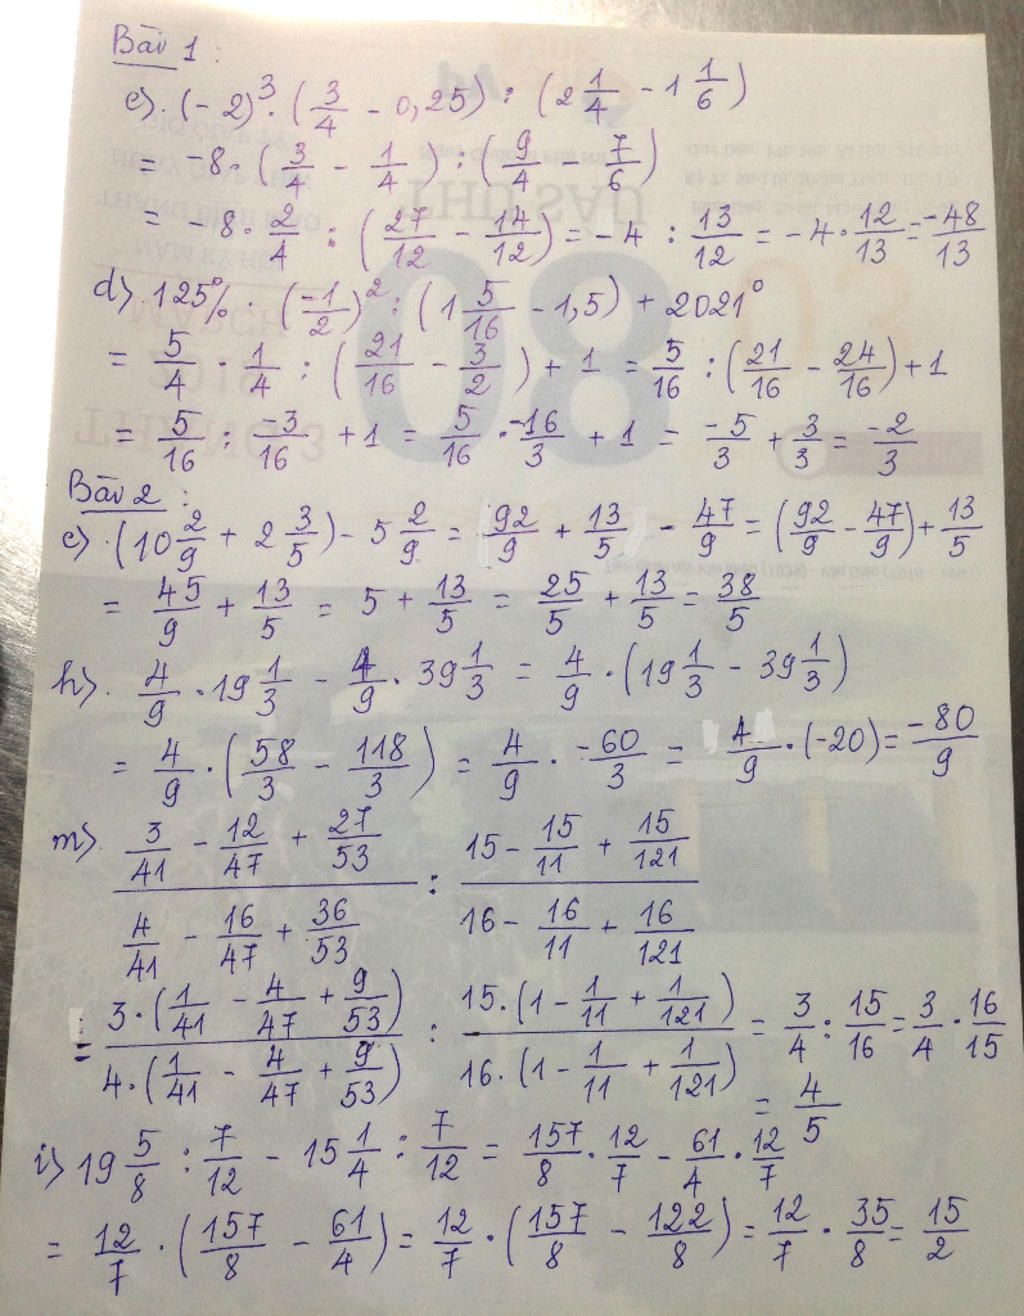 Bài 1:
c). (-2)³ . (3/4 - 0,25) : (2 1/4 - 1 1/6)
= -8 . (3/4 - 1/4) : (9/4 - 7/6)
= -8 . 2/4 : (27/12 - 14/12) = -4 : 13/12 = -4 . 12/13 = -48/13
d). 125% . (-1/2)² : (1 5/16 - 1,5) + 2021⁰
= 5/4 . 1/4 : (21/16 - 3/2) + 1 = 5/16 : (21/16 - 24/16) + 1
= 5/16 : -3/16 + 1 = 5/16 . -16/3 + 1 = -5/3 + 3/3 = -2/3
Bài 2:
c). (10 2/9 + 2 3/5) - 5 2/9 = 92/9 + 13/5 - 47/9 = (92/9 - 47/9) + 13/5
= 45/9 + 13/5 = 5 + 13/5 = 25/5 + 13/5 = 38/5
h). 4/9 . 19 1/3 - 4/9 . 39 1/3 = 4/9 . (19 1/3 - 39 1/3)
= 4/9 . (58/3 - 118/3) = 4/9 . -60/3 = 4/9 . (-20) = -80/9
m). 3/41 - 12/47 + 27/53 : 15 - 15/11 + 15/121
4/41 - 16/47 + 36/53 16 - 16/11 + 16/121
= 3 . (1/41 - 4/47 + 9/53) : 15 . (1 - 1/11 + 1/121) = 3/4 : 15/16 = 3/4 . 16/15
4 . (1/41 - 4/47 + 9/53) 16 . (1 - 1/11 + 1/121)
= 4/5
i) 19 5/8 : 7/12 - 15 1/4 : 7/12 = 157/8 . 12/7 - 61/4 . 12/7
= 12/7 . (157/8 - 61/4) = 12/7 . (157/8 - 122/8) = 12/7 . 35/8 = 15/2
THỨ SÁU
08
03
MARCH
THÁNG 3